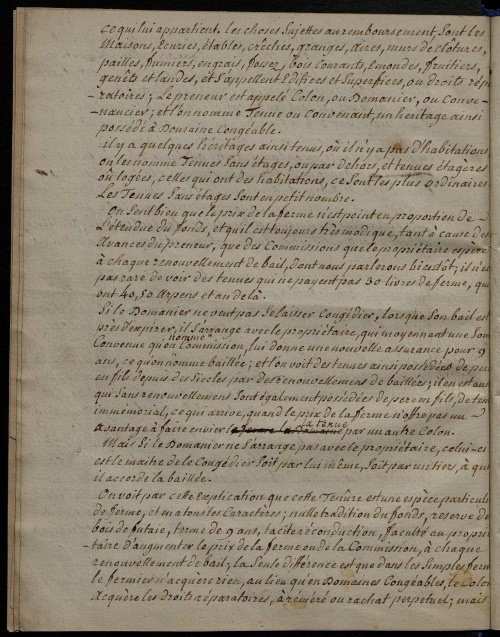 ce qui lui appartient. les choses Sujettes au remboursement Sont les
Maisons, Ecuries, étables, crêches, granges, aires, murs de clôtures,
pailles, fumiers, engrais, fossez, bois Courants, Emondes, fruitiers,
genêts et landes, et S'appellent Edifices et Superfices, ou droits répa-
-ratoires; Le preneur est appelé Colon, ou Domanier, ou Conve-
-nancier; et l'on nomme Tenue ou Convenant, un héritage ainsi
possédé à Domaine Congéable.
il y a quelques héritages ainsi tenus, où il n'y a pas d'habitations
on les nomme Tenues Sans étages, ou par dehors, et tenues étagères
ou logées, celles qui ont des habitations, ce Sont les plus ordinaires
Les Tenues Sans étages Sont en petit nombre.
On Sent bien que le prix de la ferme n'est point en proportion de
L'étendue du fonds, et qu'il est toujours très modique, tant à cause des
Avances du preneur, que des Commissions que le propriétaire espère
à chaque renouvellement de bail, dont nous parlerons bientôt; il n'es
pas rare de voir des tenues qui ne payent pas 30 livres de ferme, qu
ont 40, 50 Arpens et au delà.
Si le Domanier ne veut pas Se laisser Congédier, lorsque Son bail est
près d'expirer, il S'arrange avec le propriétaire, qui moyennant une Som
Convenue qu'on nomme Commission, lui donne une nouvelle assurance pour 9
ans, ce qu'on nomme baillée; et l'on voit des tenues ainsi possédées de per
en fils depuis des Siecles par des renouvellemens de baillées; il en est aus
qui Sans renouvellemens Sont également possédées de pere en fils, de tem
immémorial, ce qui arrive, quand le prix de la ferme n'offre pas un
avantage à faire envier la tenue par un autre Colon.
Mais Si le Domanier ne S'arrange pas avec le propriétaire, celui-ci
est le maitre de le Congédier Soit par lui même, Soit par un tiers, à qui
il accorde la baillée.
On voit par cette explication que cette Tenûre est une espèce particuliè
de ferme, et en a tous les Caractères; nulle tradition du fonds, reserve de
bois de futaie, terme de 9 ans, tacite réconduction, faculté au propri-
-taire d'augmenter le prix de la ferme ou de la Commission, à chaque
renouvellement de bail; la Seule différence est que dans les Simples ferm
le fermier n'acquère rien, au lieu qu'en Domaines Congéables, le Colon
Acquère les Droits réparatoires, à réméré ou rachat perpetuel; mais